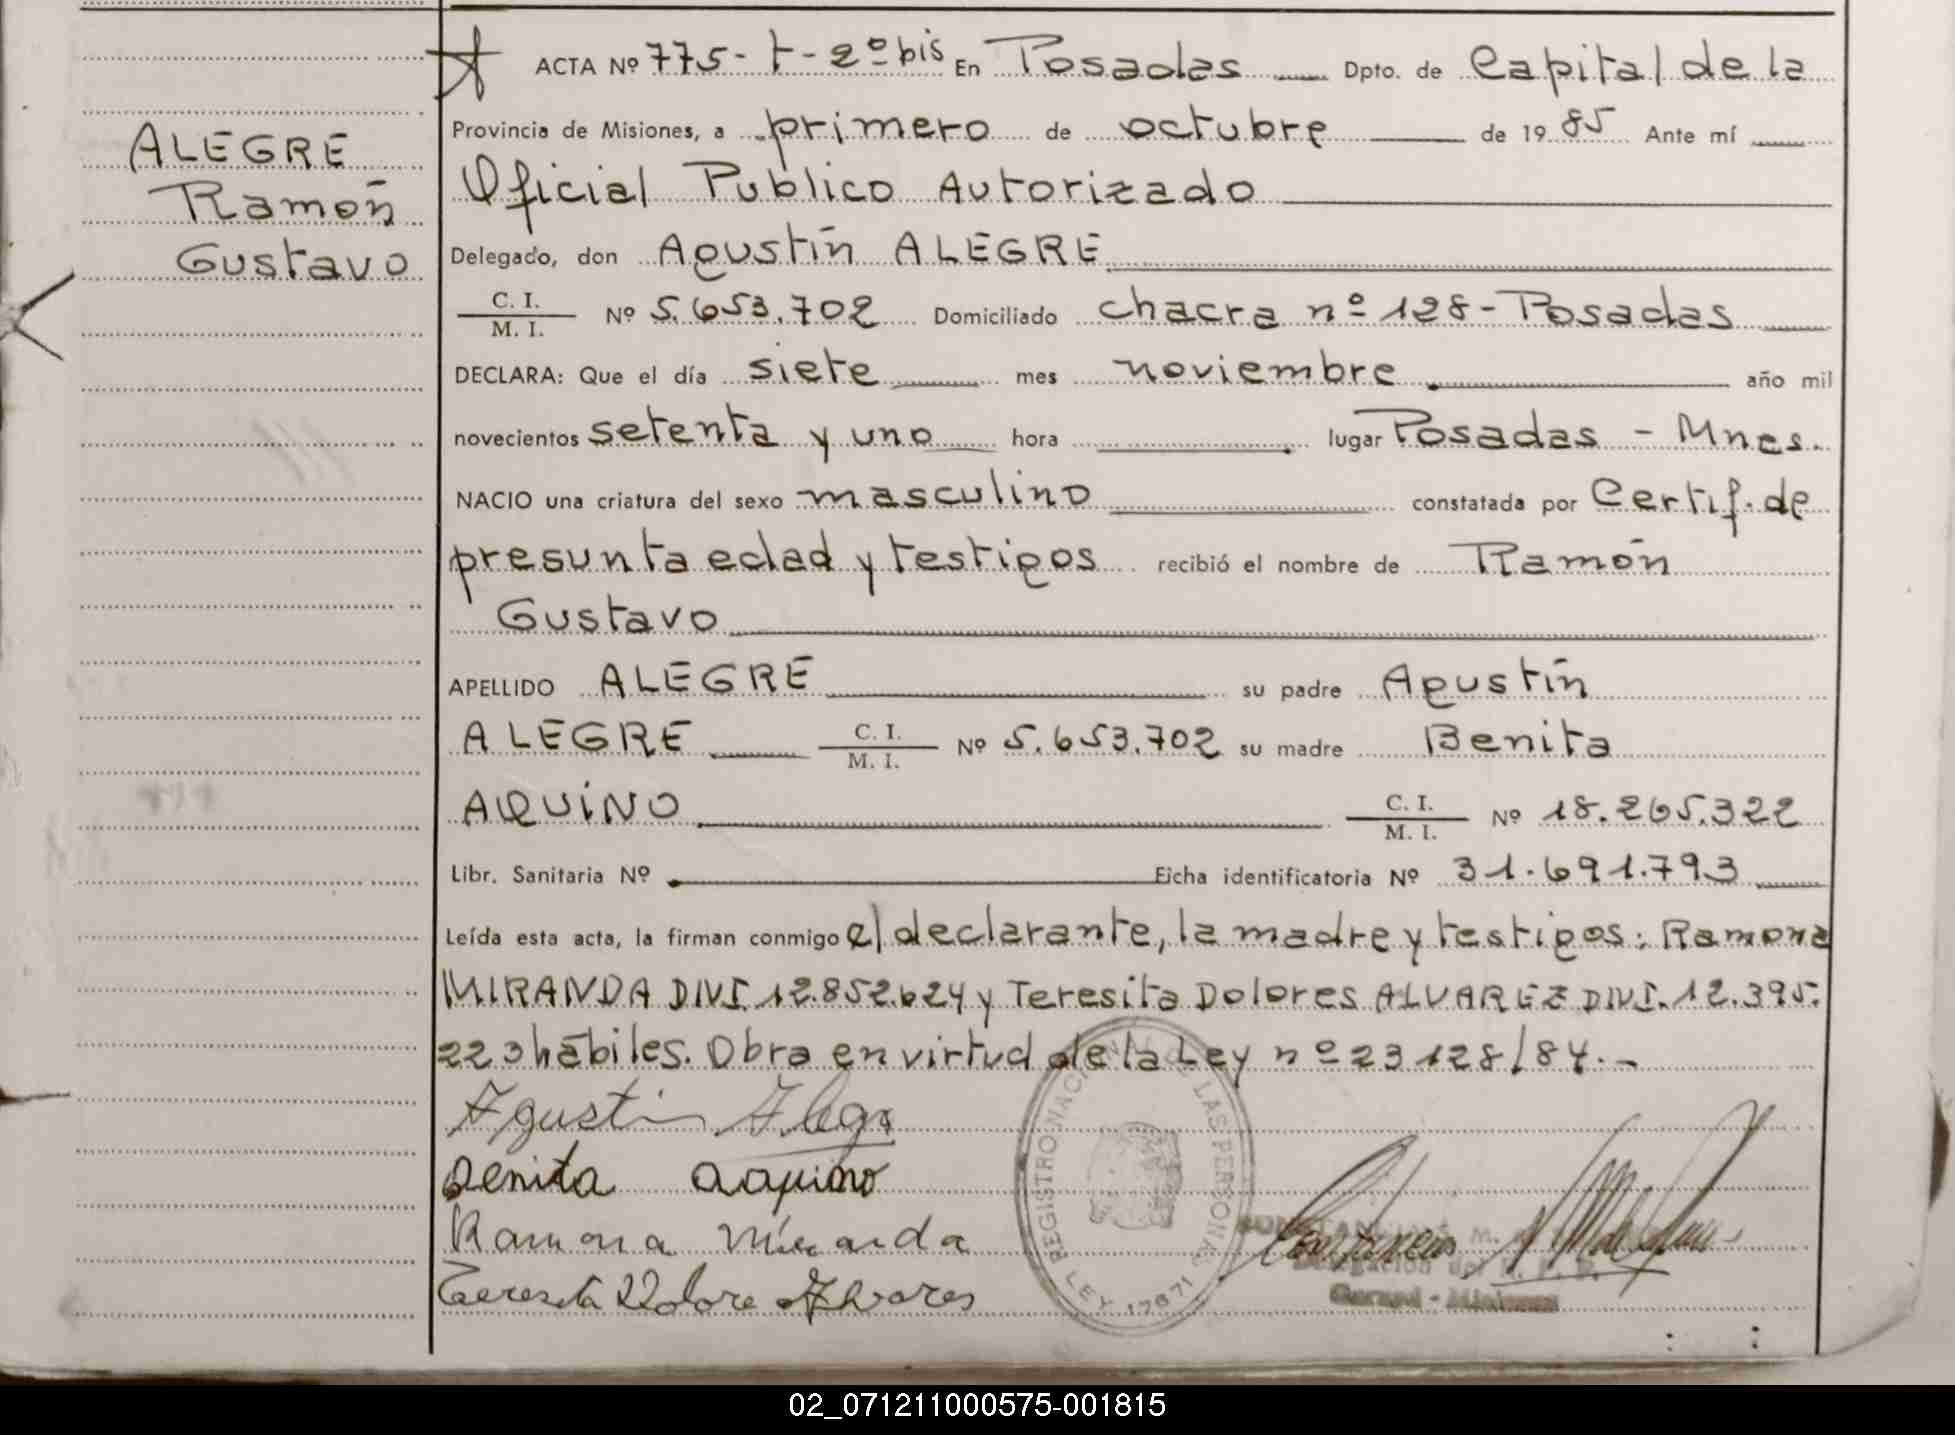 ACTA Nº 775-t-2º bis En Posadas Dpto. de Capital de la
Provincia de Misiones, a primero de octubre de 1985 Ante mí
Oficial Publico Autorizado
ALEGRE
Ramón
Gustavo
Delegado, don Agustín ALEGRE
C. I.
M. I.
Nº 5.653.702 Domiciliado Chacra nº 128-Posadas
DECLARA: Que el día siete mes noviembre año mil
novecientos setenta y uno hora lugar Posadas - Mnes.
NACIO una criatura del sexo masculino constatada por Certif. de
presunta edad y testigos recibió el nombre de Ramón
Gustavo
APELLIDO ALEGRE su padre Agustín
ALEGRE C. I. M. I. Nº 5.653.702 su madre Benita
AQUINO C. I. M. I. Nº 18.265.322
Libr. Sanitaria Nº Ficha identificatoria Nº 31.691.793
Leída esta acta, la firman conmigo el declarante, la madre y testigos: Ramona
MIRANDA DNI. 12.852.624 y Teresita Dolores ALVAREZ DNI. 12.395.
223 hábiles. Obra en virtud de la Ley nº 23128/84.-
Agustin Alegr
Benita aquino
Ramona Miranda
Teresita Dolore Alvares
REGISTRO NACIONAL DE LAS PERSONAS
LEY 17671
Delegación del R. P. P.
Misiones
02_071211000575-001815